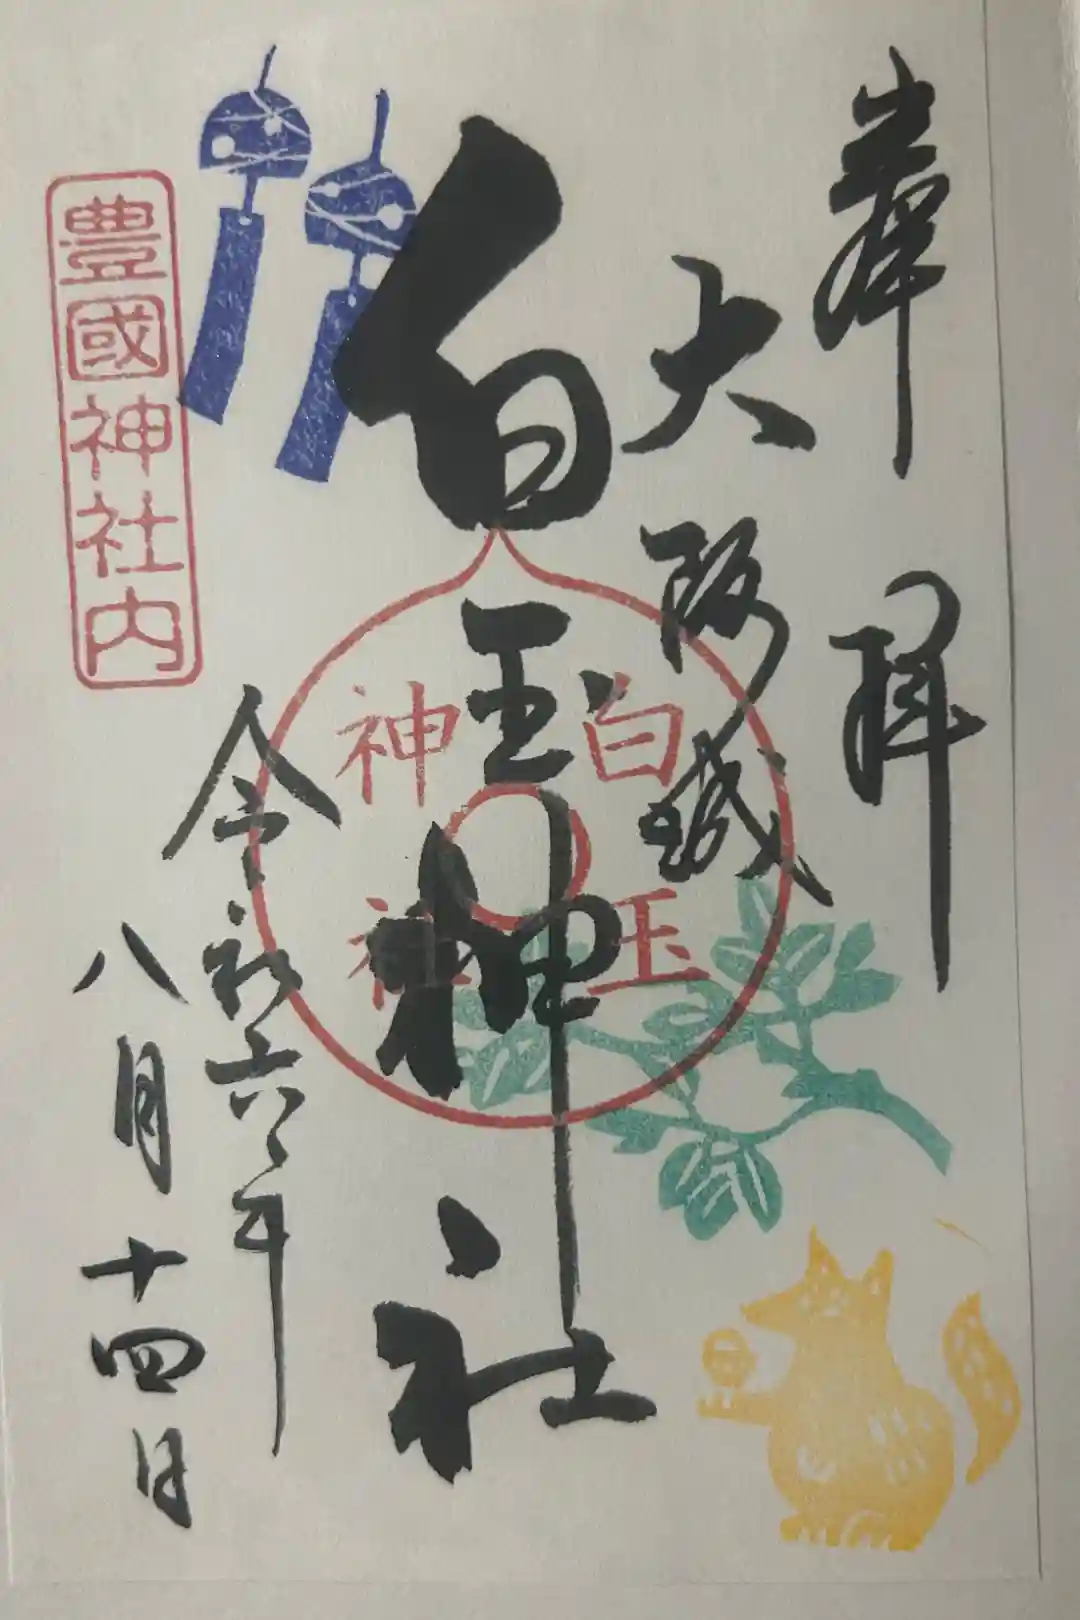 奉拝
大阪城
白玉神社
白玉
神社
令和六年
八月十四日
豊國神社内